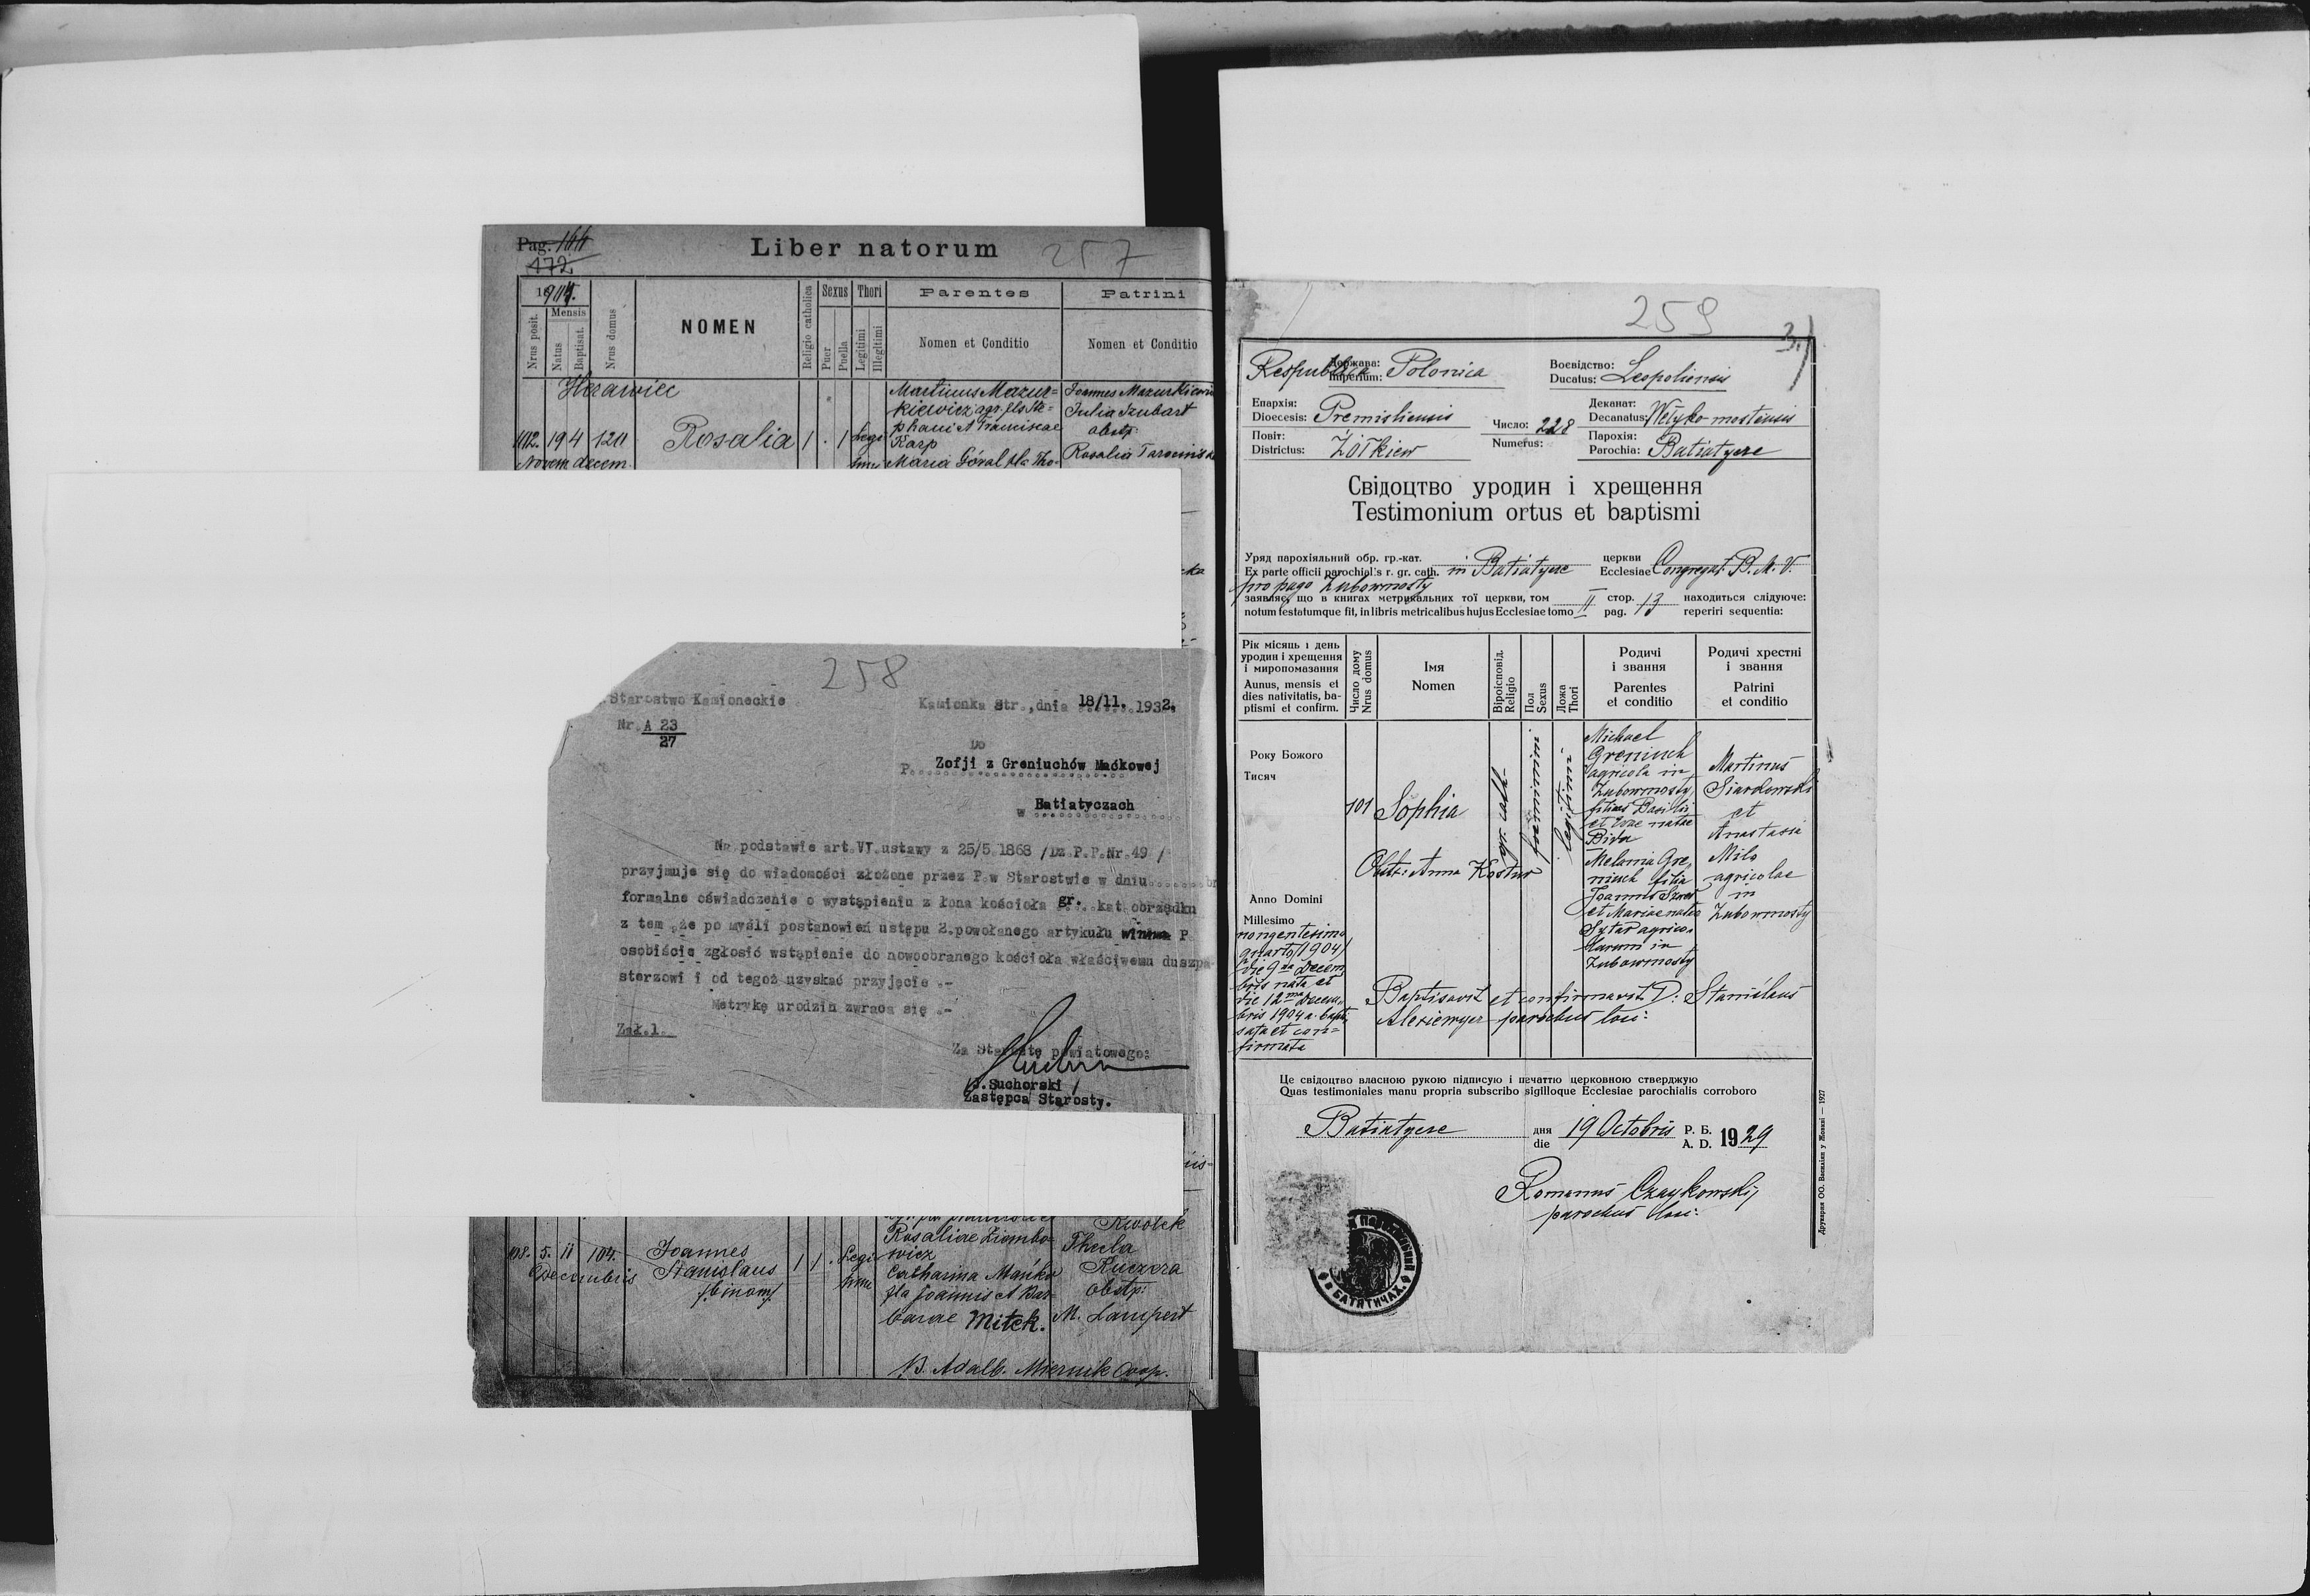 Pag. 166
472
Liber natorum
257
1904.
Nrus posit.
Mensis
Natus
Baptisat.
Nrus domus
NOMEN
Religio catholica
Sexus
Puer
Puella
Thori
Legitimi
Illegitimi
Parentes
Nomen et Conditio
Patrini
Nomen et Conditio
Martinus Mazur=
kiewicz agr. fls Ste=
phani et Franciscae
Karp
Maria Góral fla Tho-
Joannes Mazurkiewicz
Julia Szubart
obstp:
Rosalia
19 4 120
Rosalia 1 . 1 Legi
timi
Novem decem.
258
Starostwo Kamioneckie
Kamionka Str., dnia 18/11. 1932.
Nr. A 23
27
Do
P. Zofji z Greniuchów Maćkowej
w Batiatyczach
Na podstawie art.VI.ustawy z 25/5.1868 /Dz.P.P.Nr.49 /
przyjmuje się do wiadomości złożone przez P.w Starostwie w dniu
formalne oświadczenie o wystąpieniu z łona kościoła gr. kat.obrządku
z tem ,że po myśli postanowień ustępu 2.powołanego artykułu winna P.
osobiście zgłosić wstąpienie do nowoobranego kościoła właściwemu duszpa-
sterzowi i od tegoż uzyskać przyjęcie .-
Metrykę urodzin zwraca się .-
Zał.1.
Za Starostę powiatowego:
Suchorski /
Zastępca Starosty.
Kwolek
Rosaliae Ziembo-
wicz
Catharina Mańko
fla Joannis et Bar-
barae Mitek.
Thecla
Kuczera
obstp:
M. Lampert
5. 11 104.
Decembris
Joannes
Stanislaus
/binom/
1 1 . Legi
timi
B. Adalb. Miernik Coop.
259
3.)
Держава:
Imperium:
Respublica Polonica
Воєвідство:
Ducatus: Leopoliensis
Епархія:
Dioecesis: Premisliensis
Число: 228
Numerus:
Деканат:
Decanatus: Wełyko mostensis
Повіт:
Districtus: Żółkiew
Парохія:
Parochia: Batiatycze
Свідоцтво уродин і хрещення
Testimonium ortus et baptismi
Уряд парохіяльний обр. гр.-кат.
Ex parte officii parochialis r. gr. cath. in Batiatycze
церкви
Ecclesiae Congregat. B. M. V.
pro pago Zubowmosty
заявляє, що в книгах метрикальних тої церкви, том II стор. 13 находиться слідуюче:
notum testatumque fit, in libris metricalibus hujus Ecclesiae tomo pag. reperiri sequentia:
Рік місяць і день
уродин і хрещення
і миропомазання
Annus, mensis et
dies nativitatis, ba-
ptismi et confirm.
Число дому
Nrus domus
Імя
Nomen
Віроісповід.
Religio
Пол
Sexus
Ложа
Thori
Родичі
і звання
Parentes
et conditio
Родичі хрестні
і звання
Patrini
et conditio
Року Божого
Тисяч
Anno Domini
Millesimo
nongentesimo
quarto /1904/
die 9na Decem
bris nata et
die 12ma Decem
bris 1904 a. bapti
sata et con=
firmata
101
Sophia
Obst: Anna Kostur
gr. cath-
foeminini
legitimi
Michael
Greniuch
agricola in
Zubowmosty
filius Basilii
et Evae natae
Bida
Melania Gre,
niuch filia
Joannis
et Mariae natae
Sztar agrico,
larum in
Zubowmosty
Martinus
Siardowski
et
Anastasia
Milo
agricolae
in
Zubowmosty
Baptisavit et confirmavit D: Stanislaus
Alexiewycz parochus loci:
Це свідоцтво власною рукою підписую і печаттю церковною стверджую
Quas testimoniales manu propria subscribo sigilloque Ecclesiae parochialis corroboro
Batiatycze дня 19 Octobris Р. Б. 1929
die A. D.
Romanus Czaykowskij
parochus loci:
в БАТЯТИЧАХ
Друкарня ОО. Василіян у Жовкві — 1927